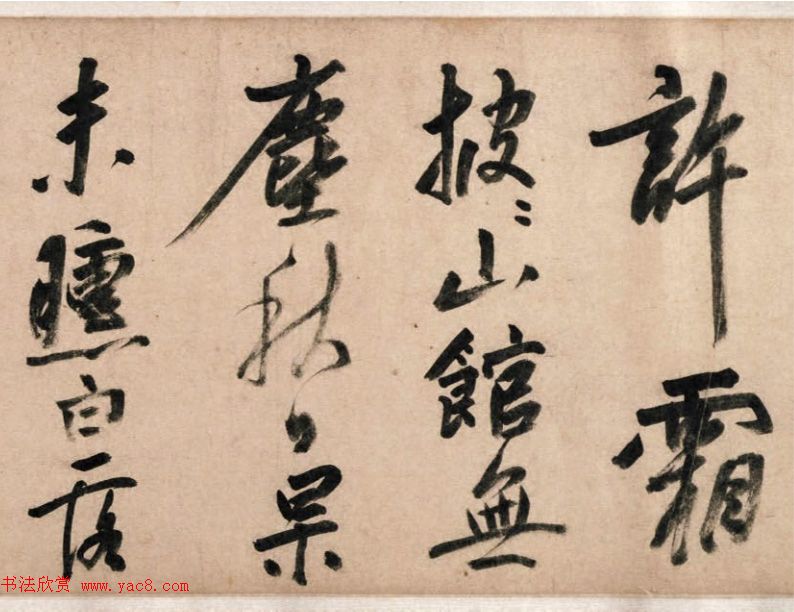 許霜
披〻山館無
塵秋日杲
未曛白露
书法欣赏 www.yac8.com